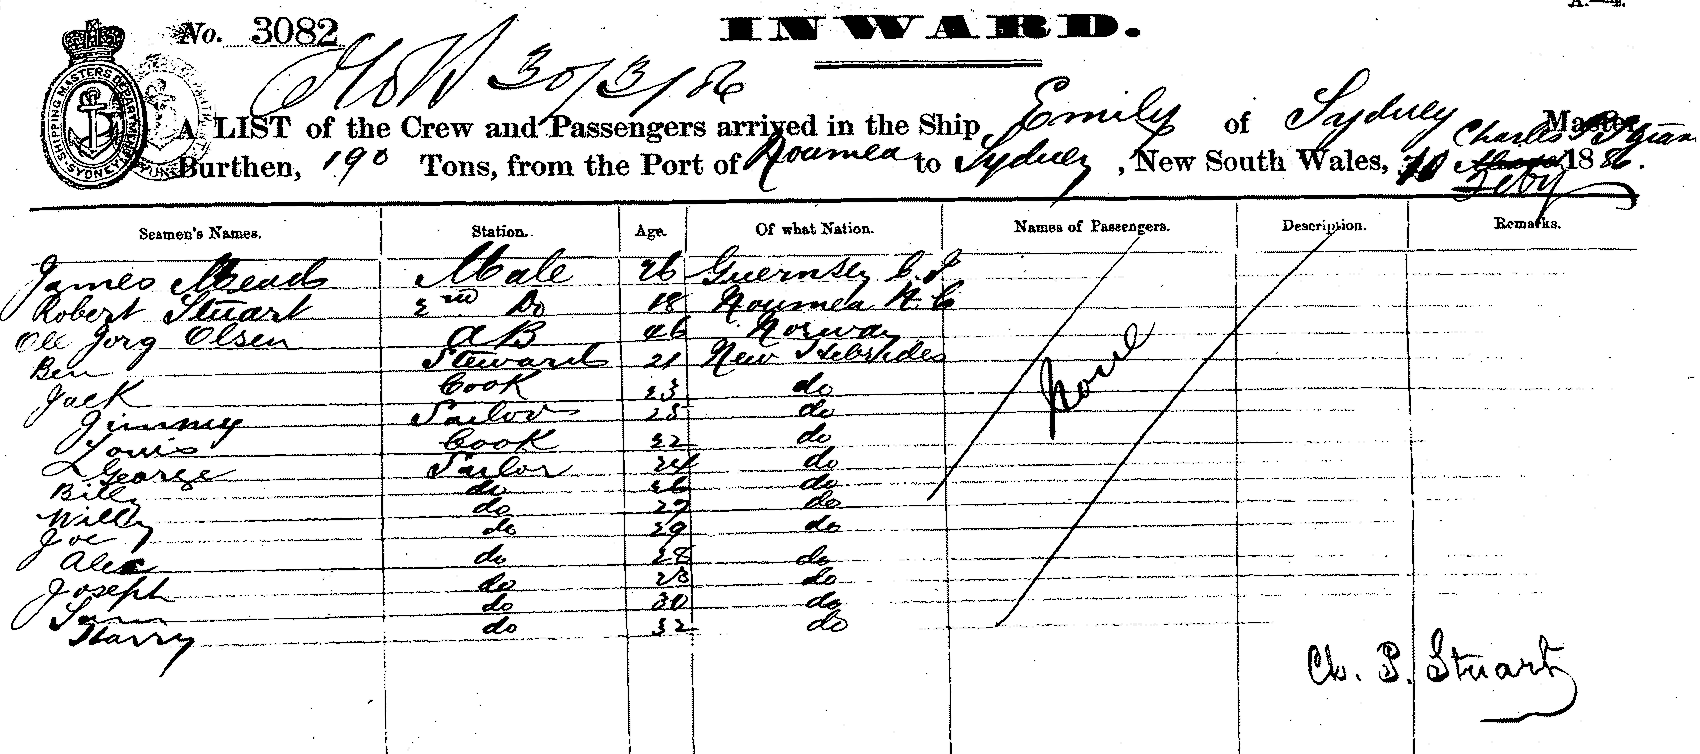 A.—4.
No. 3082
INWARD.
30/3/86
SHIPPING MASTERS DEPARTMENT SYDNEY
A LIST of the Crew and Passengers arrived in the Ship Emily of Sydney Master Charles
Burthen, 190 Tons, from the Port of Noumea to Sydney, New South Wales, 10 Feby 1886.
Seamen's Names. Station. Age. Of what Nation. Names of Passengers. Description. Remarks.
James Meads Mate 26 Guernsey C. I.
Robert Stuart 2nd Do 18 Noumea N. C.
Ole Jorg Olsen AB 46 Norway
Ben Steward 21 New Hebrides
Jack Cook 23 do
Jimmy Sailor 25 do
Louis Cook 22 do
George Sailor 24 do
Billy do 26 do
Willy do 27 do
Joe do 29 do
Alec do 28 do
Joseph do 28 do
Sam do 30 do
Harry do 32 do
None
Ch. P. Stuart